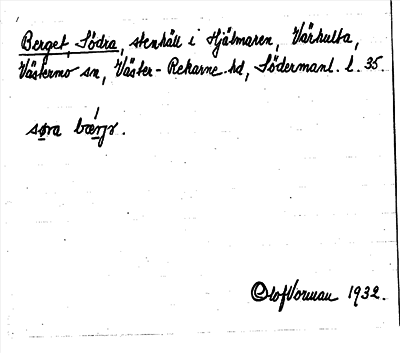 Berget, Södra, stenhäll i Hjälmaren, Värhulta,
Västermo sn, Väster-Rekarne hd, Södermanl. l. 35.
søra bærjə.
Olof Vorman 1932.